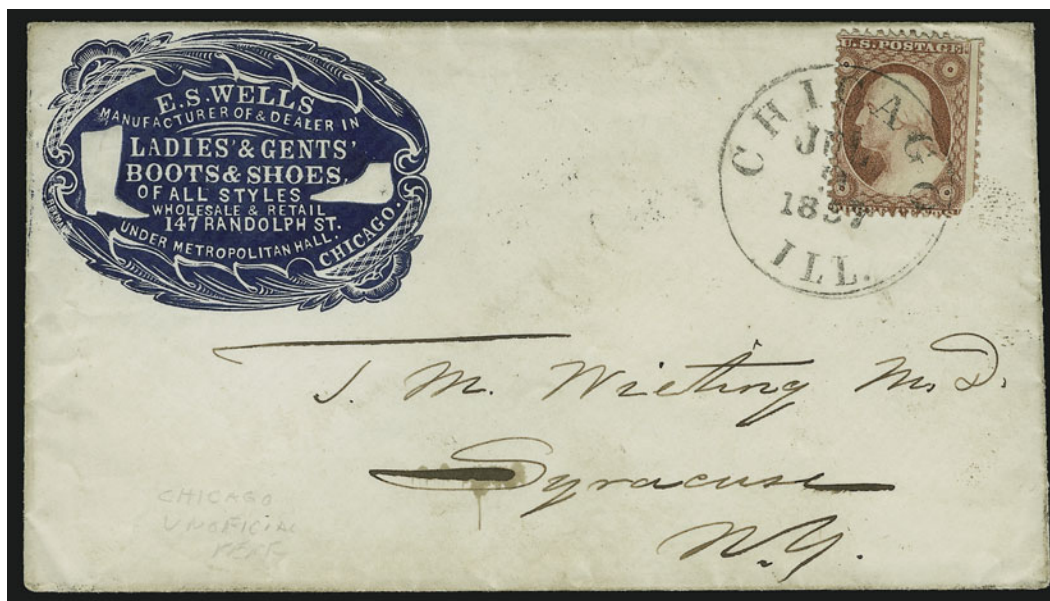 E. S. WELLS
MANUFACTURER OF & DEALER IN
LADIES' & GENTS'
BOOTS & SHOES,
OF ALL STYLES
WHOLESALE & RETAIL
147 RANDOLPH ST.
UNDER METROPOLITAN HALL,
CHICAGO.
U.S. POSTAGE
CENTS
CHICAGO
1857
ILL.
J. M. Wieting M.D.
Syracuse
N.Y.
CHICAGO
UNOFFICIAL
PERF